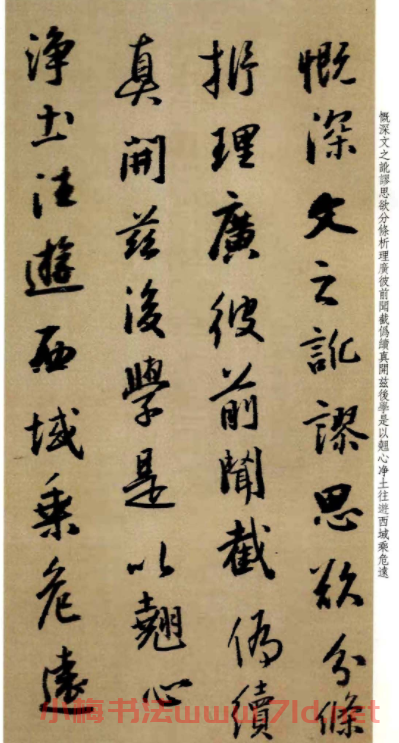 慨深文之訛謬思欲分條
析理廣彼前聞截偽續
真開茲後學是以翹心
淨土往遊西域乘危遠
慨深文之訛謬思欲分條析理廣彼前聞截僞續真開兹後學是以翹心净土往遊西域乘危遠
小梅书法www.7ld.net